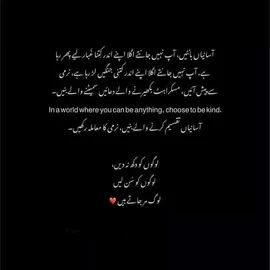 آسانیاں بانٹیں، آپ نہیں جانتے اگلا اپنے اندر کتنا غبار لیے پھر رہا
ہے، آپ نہیں جانتے اگلا اپنے اندر کتنی جنگیں لڑ رہا ہے، نرمی
سے پیش آئیں، مسکراہٹ بکھیرنے والے دعائیں سمیٹنے والے بنیں۔
In a world where you can be anything, choose to be kind.
آسانیاں تقسیم کرنے والے بنیں، نرمی کا معاملہ رکھیں۔
لوگوں کو دکھ نہ دیں،
لوگوں کو سُن لیں
لوگ مر جاتے ہیں ❤️